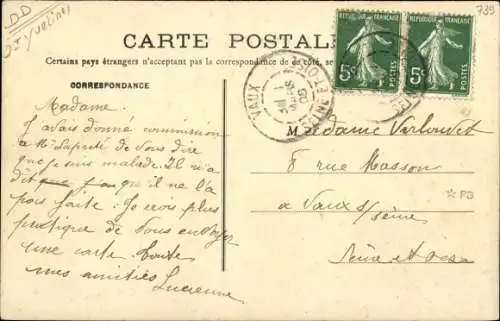 DD
739
CARTE POSTALE
Certains pays étrangers n'acceptant pas la correspondance de ce côté, se
RÉPUBLIQUE FRANÇAISE
5c
RÉPUBLIQUE FRANÇAISE
5c
CORRESPONDANCE
VAUX
SEINE-ET-OISE
Madame
J'avais donné commission
a Mr Laputé de Vous dire
que je suis malade. Il m'a
dit que il ne l'a
pas faite. Je crois plus
pratique de Vous envoyer
une carte. Toute
mes amitiés Lucienne
Madame
8 rue Masson
a Vaux s/seine
Seine et oise
* PB